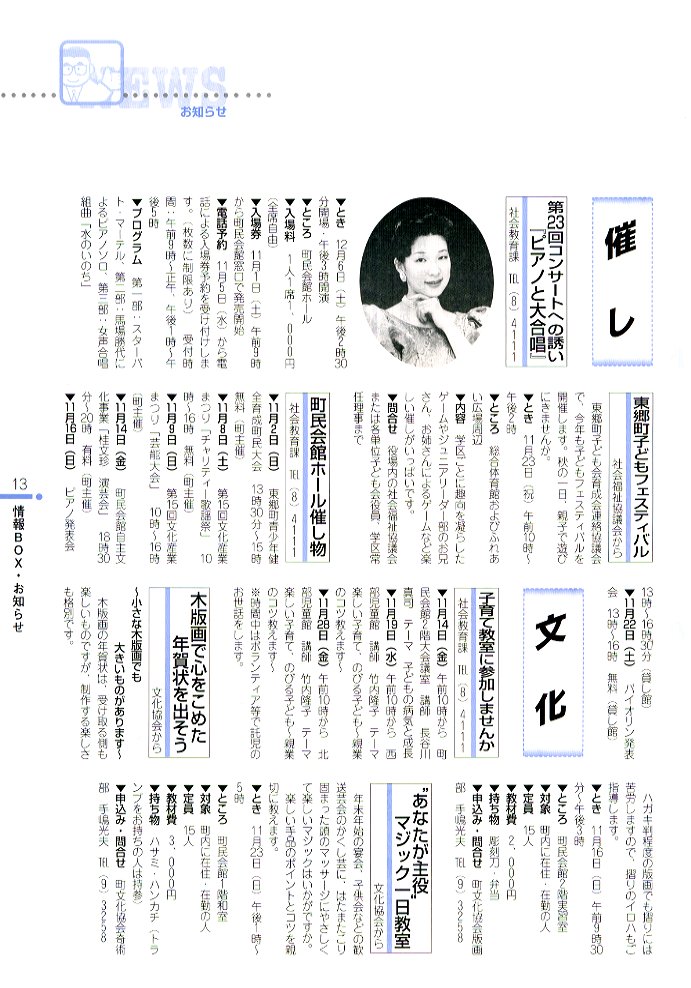 NEWS
お知らせ
催し
第23回コンサートへの誘い
『ピアノと大合唱』
社会教育課 TEL(8)4111
▼とき 12月6日(土) 午後2時30
分開場・午後3時開演
▼ところ 町民会館ホール
▼入場料 1人1席1,000円
(全席自由)
▼入場券 11月1日(土) 午前9時
から町民会館窓口で発売開始
▼電話予約 11月5日(水)から電
話による入場券予約を受け付けしま
す。(枚数に制限あり) 受付時
間:午前9時〜正午、午後1時〜午
後5時
▼プログラム 第一部:スターバ
ト・マーテル、第二部:馬場勝代に
よるピアノソロ、第三部:女声合唱
組曲「水のいのち」
東郷町子どもフェスティバル
社会福祉協議会から
東郷町子ども会育成会連絡協議会
で、今年も子どもフェスティバルを
開催します。秋の一日、親子で遊び
にきませんか。
▼とき 11月23日(祝) 午前10時〜
午後2時
▼ところ 総合体育館およびふれあ
い広場周辺
▼内容 学区ごとに趣向を凝らした
ゲームやジュニアリーダー部のお兄
さん、お姉さんによるゲームなど楽
しい催しがいっぱいです。
▼問合せ 役場内の社会福祉協議会
または各単位子ども会役員、学区常
任理事まで
町民会館ホール催し物
社会教育課 TEL(8)4111
▼11月2日(日) 東郷町青少年健
全育成町民大会 13時30分〜15時
無料(町主催)
▼11月8日(土) 第15回文化産業
まつり「チャリティー歌謡祭」 10
時〜16時 無料(町主催)
▼11月9日(日) 第15回文化産業
まつり「芸能大会」 10時〜16時
(町主催)
▼11月14日(金) 町民会館自主文
化事業「桂文珍 演芸会」 18時30
分〜20時 有料(町主催)
▼11月16日(日) ピアノ発表会
13時〜16時30分(貸し館)
▼11月22日(土) バイオリン発表
会 13時〜16時 無料(貸し館)
文化
子育て教室に参加しませんか
社会教育課 TEL(8)4111
▼11月14日(金) 午前10時から 町
民会館2階大会議室 講師 長谷川
真司 テーマ 子どもの病気と成長
▼11月19日(水) 午前10時から 西
部児童館 講師 竹内隆子 テーマ
楽しい子育て、のびる子ども〜親業
のコツ教えます〜
▼11月28日(金) 午前10時から 北
部児童館 講師 竹内隆子 テーマ
楽しい子育て、のびる子ども〜親業
のコツ教えます〜
※時間中はボランティア等で託児の
お世話をします。
木版画で心をこめた
年賀状を出そう
文化協会から
〜小さな木版画でも
大きいものがあります〜
木版画の年賀状は、受け取る側も
楽しいものですが、制作する楽しさ
も格別です。
ハガキ判程度の版画でも摺りには
苦労しますので、摺りのイロハもご
指導します。
▼とき 11月16日(日) 午前9時30
分〜午後3時
▼ところ 町民会館2階実習室
▼対象 町内に在住・在勤の人
▼定員 15人
▼教材費 2,000円
▼持ち物 彫刻刀・弁当
▼申込み・問合せ 町文化協会版画
部 手嶋光夫 TEL(9)3258
“あなたが主役”
マジック一日教室
文化協会から
年末年始の宴会、子供会などの歓
送芸会のかくし芸に、はたまたこり
固まった頭のマッサージにやさしく
て楽しいマジックはいかがですか。
楽しい手品のポイントとコツを親
切に教えます。
▼とき 11月23日(日) 午後1時〜
5時
▼ところ 町民会館1階和室
▼対象 町内に在住・在勤の人
▼定員 15人
▼教材費 3,000円
▼持ち物 ハサミ・ハンカチ(トラ
ンプをお持ちの人は持参)
▼申込み・問合せ 町文化協会奇術
部 手嶋光夫 TEL(9)3258
13
情報BOX・お知らせ